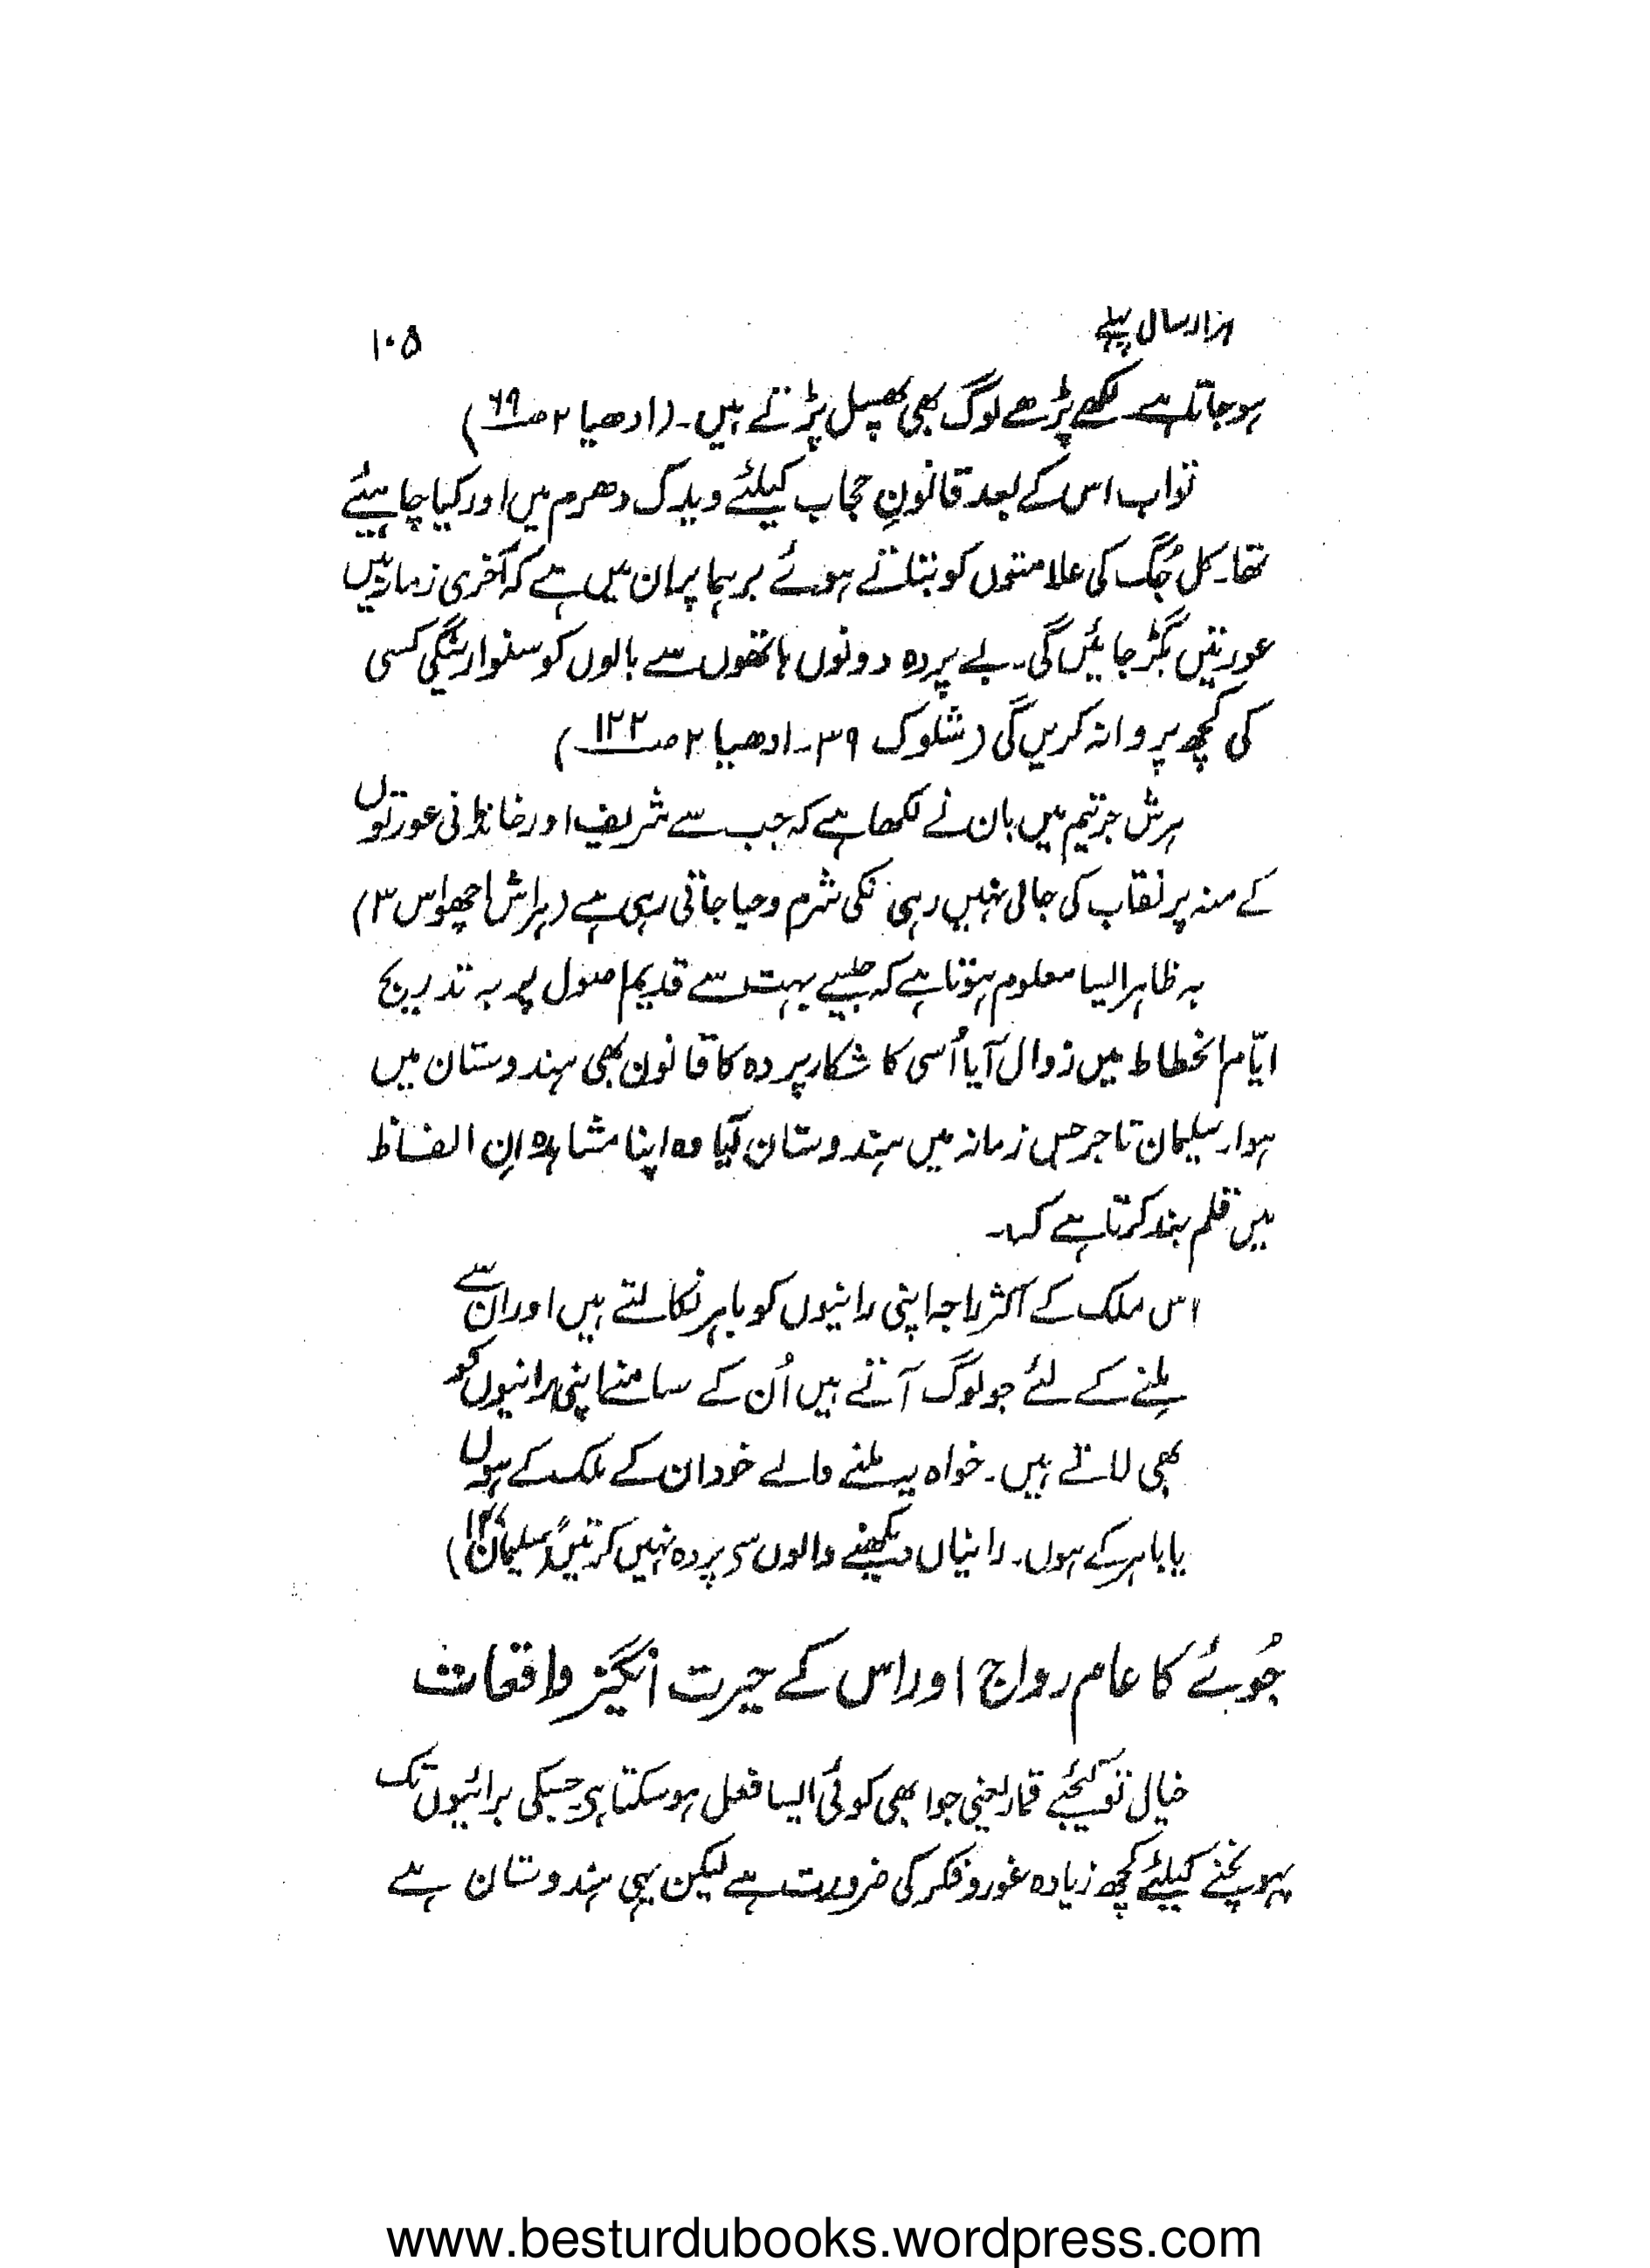 ہزار سال پہلے
۱۰۵
ہوجاتا ہے لکھے پڑھے لوگ بھی پھسل پڑتے ہیں۔ (ادھیا ۲ صـ ۶۹)
تو اب اس کے بعد قانونِ حجاب کیلئے ویدک دھرم میں اور کیا چاہیئے
تھا۔ کل جُگ کی علامتوں کو بتاتے ہوئے برہما پران میں ہے کہ آخری زمانہ میں
عورتیں بگڑ جائیں گی۔ بے پردہ دونوں ہاتھوں سے بالوں کو سنوارینگی کسی
کی کچھ پروا نہ کریں گی (شلوک ۳۹۔ ادھیا ۲ صـ ۱۲۲)
ہرش چرتیم میں بان نے لکھا ہے کہ جب سے شریف اور خاندانی عورتوں
کے منہ پر نقاب کی جالی نہیں رہی نکی شرم وحیا جاتی رہی ہے (ہراش اچھواس ۳)
بہ ظاہر ایسا معلوم ہوتا ہے کہ جیسے بہت سے قدیم اصول پر بہ تدریج
ایّام انحطاط میں زوال آیا اُسی کا شکار پردہ کا قانون بھی ہندوستان میں
ہوا۔ سلیمان تاجر جس زمانہ میں ہندوستان آیا وہ اپنا مشاہدہ اِن الفاظ
میں قلم بند کرتا ہے کہ۔
اس ملک کے اکثر راجہ اپنی رانیوں کو باہر نکالتے ہیں اور ان سے
مِلنے کے لئے جو لوگ آتے ہیں اُن کے سامنے اپنی رانیوں کو
بھی لاتے ہیں۔ خواہ یہ ملنے والے خود ان کے ملک کے ہوں
یا باہر کے ہوں۔ رانیاں دیکھنے والوں سے پردہ نہیں کرتیں (سلیمان)
جُوئے کا عام رواج اور اس کے حیرت انگیز واقعات
خیال تو کیجئے قمار یعنی جوا بھی کوئی ایسا فعل ہوسکتا ہے جسکی برائیوں تک
پہونچنے کیلئے کچھ زیادہ غور و فکر کی ضرورت ہے لیکن یہی ہندوستان ہے
www.besturdubooks.wordpress.com